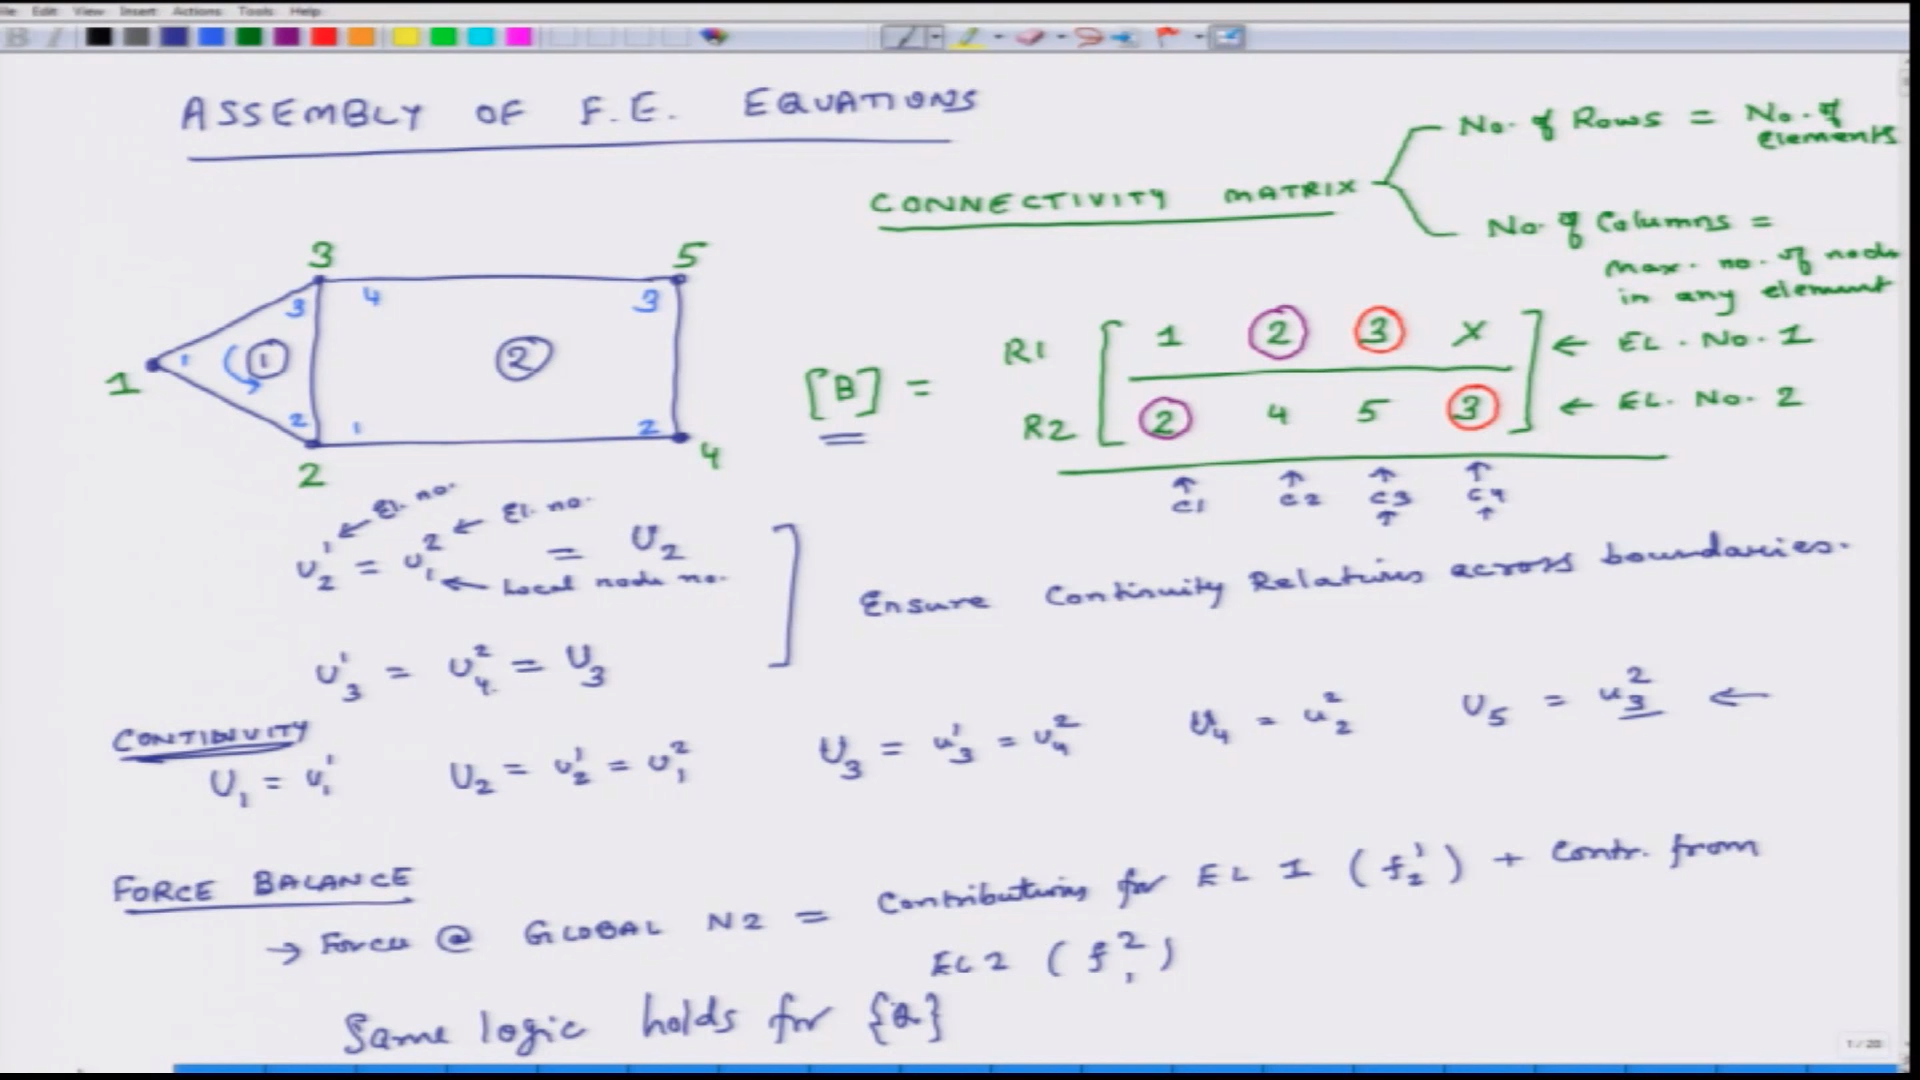 File Edit View Insert Actions Tools Help
ASSEMBLY OF F.E. EQUATIONS
CONNECTIVITY MATRIX
No. of Rows = No. of Elements
No. of Columns =
max. no. of nodes
in any element
3 5
3 4 3
1 1 1 2
2 1 2
2 4
[B] =
R1 1 2 3 X ← EL. No. 1
R2 2 4 5 3 ← EL. No. 2
↑ ↑ ↑ ↑
C1 C2 C3 C4
↑ ↑
← El. no. ← El. no.
u₂¹ = u₁² = U₂
← Local node no.
u₃¹ = u₄² = U₃
Ensure Continuity Relations across boundaries.
CONTINUITY
U₁ = u₁¹ U₂ = u₂¹ = u₁² U₃ = u₃¹ = u₄² U₄ = u₂² U₅ = u₃² ←
FORCE BALANCE
→ Force @ GLOBAL N2 = Contributions for EL 1 (f₂¹) + Contr. from
EL 2 (f₁²)
Same logic holds for {Q}
1 / 20